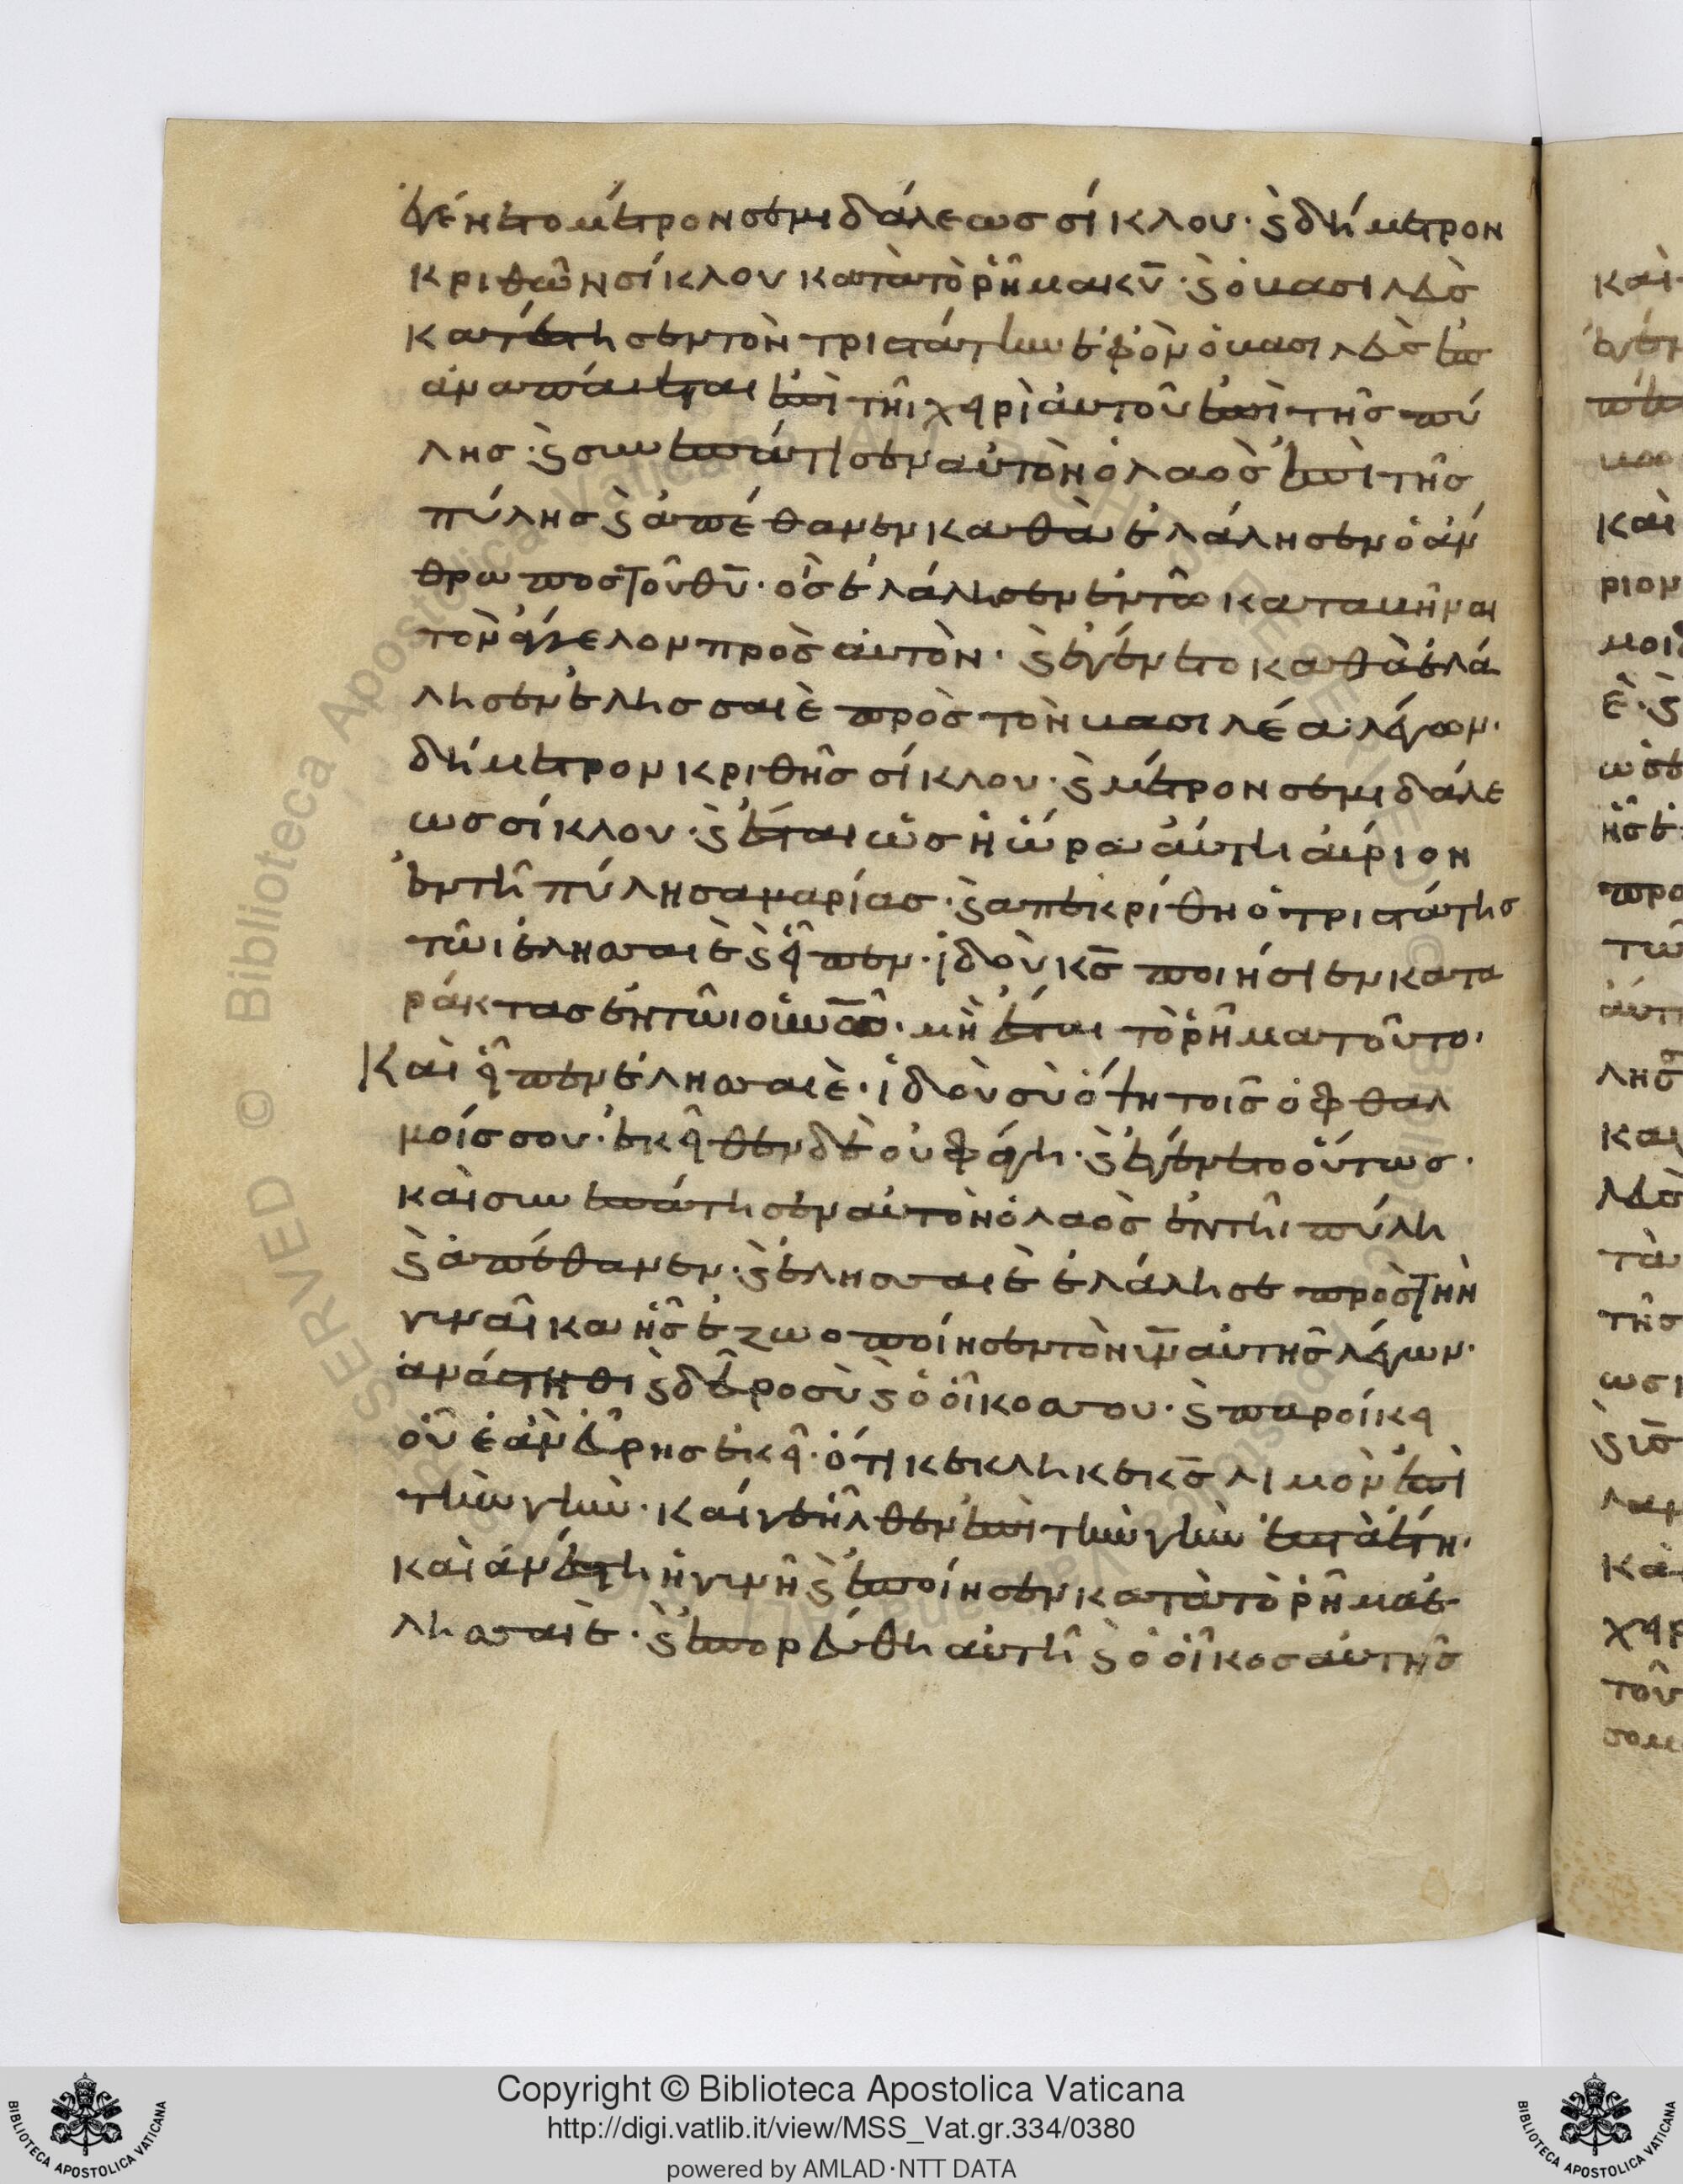 ἐγένετο μέτρον σεμιδάλεως σίκλου· ϗ δὴ μετρον
κριθῶν σίκλου κατὰ τὸ ῥῆμα κ̅υ̅· ϗ ὁ βασιλεὺς
κατέστησεν τὸν τριστάτην ἐφ' ὃν ὁ βασιλεὺς ἐπ
αναπαύεται ἐπὶ τῆι χειρὶ αὐτοῦ ἐπὶ τῆς πύ
λης· ϗ συνεπάτησεν αὐτὸν ὁ λαὸς ἐπὶ τῆς
πύλης ϗ ἀπέθανεν καθὰ ἐλάλησεν ὁ ἄν
θρωπος τοῦ θ̅υ̅· ὃς ἐλάλησεν ἐν τῶ καταβῆναι
τὸν ἄγγελον πρὸς αὐτὸν· ϗ ἐγένετο καθὰ ἐλά
λησεν ἐλησσαιὲ πρὸς τὸν βασιλέα λέγων·
δὴ μετρον κριθῆς σίκλου· ϗ μέτρον σεμιδάλε
ως σίκλου· ϗ ἔσται ὡς ἡ ὥρα αὕτη αὔριον
ἐν τῆ πύλη σαμαρίας· ϗ απεκρίθη ὁ τριστάτης
τῶι ἐλησσαιὲ ϗ εἶπεν· ἰδοὺ κ̅ς̅ ποιήσει εν κατα
ράκτας ἐν τῶι οὐν̅ω̅· μὴ ἔσται τὸ ῥῆμα τοῦτο·
Καὶ εἶπεν ἐλησσαιὲ· ἰδοὺ σὺ ὄψη τοῖς ὀφθαλ
μοίς σου· ἐκεῖθεν δὲ οὐ φάγη· ϗ ἐγένετο οὕτως·
καὶ συνεπάτησεν αὐτὸν ὁ λαὸς ἐν τῆι πύλη
ϗ ἀπέθανεν· ϗ ἐλησσαιὲ ἐλάλησε πρὸς τὴν
γυναῖκα ἧς ἐζωοποίησεν τὸν υ̅ν̅ αὐτῆς λέγων·
ἀνάστηθι ϗ δεῦρο σὺ ϗ ὁ οἶκος σου· ϗ παροίκει
οὗ ἐὰν εὕρης ἐκεῖ· ὅτι κεκληκε κ̅ς̅ λιμὸν ἐπὶ
τὴν γῆν· καί γε ἦλθεν ἐπὶ τὴν γῆν ἑπτὰ ἔτη·
καὶ ἀνέστη ἡ γυνὴ ϗ ἐποίησεν κατὰ τὸ ῥῆμα ἐ
λησσαιὲ· ϗ ἐπορεύθη αὐτὴ ϗ ὁ οἶκος αὐτῆς
Copyright © Biblioteca Apostolica Vaticana
http://digi.vatlib.it/view/MSS_Vat.gr.334/0380
powered by AMLAD·NTT DATA
BIBLIOTECA APOSTOLICA VATICANA
BIBLIOTECA APOSTOLICA VATICANA